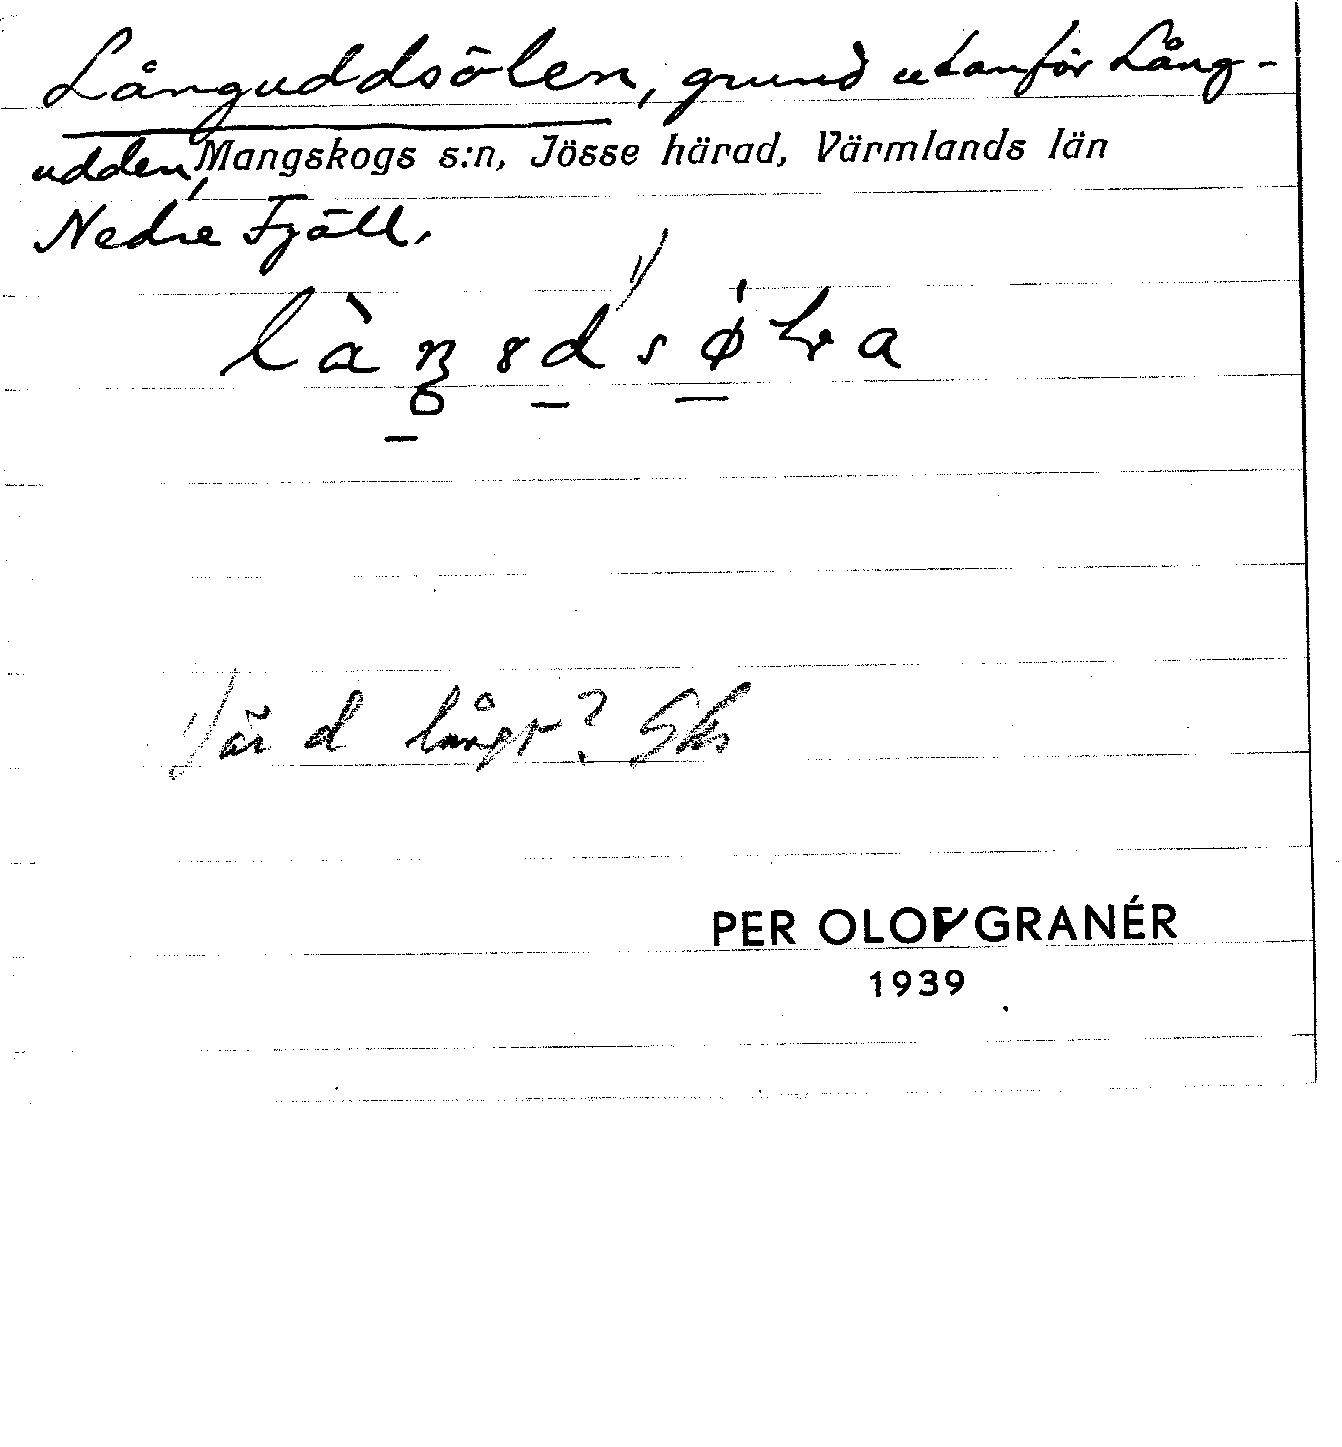 Långuddsölen, grund utanför Lång-
udden, Mangskogs s:n, Jösse härad, Värmlands län
Nedre Fjäll.
1)
1) är d långt? Sks
PER OLOF GRANÉR
1939